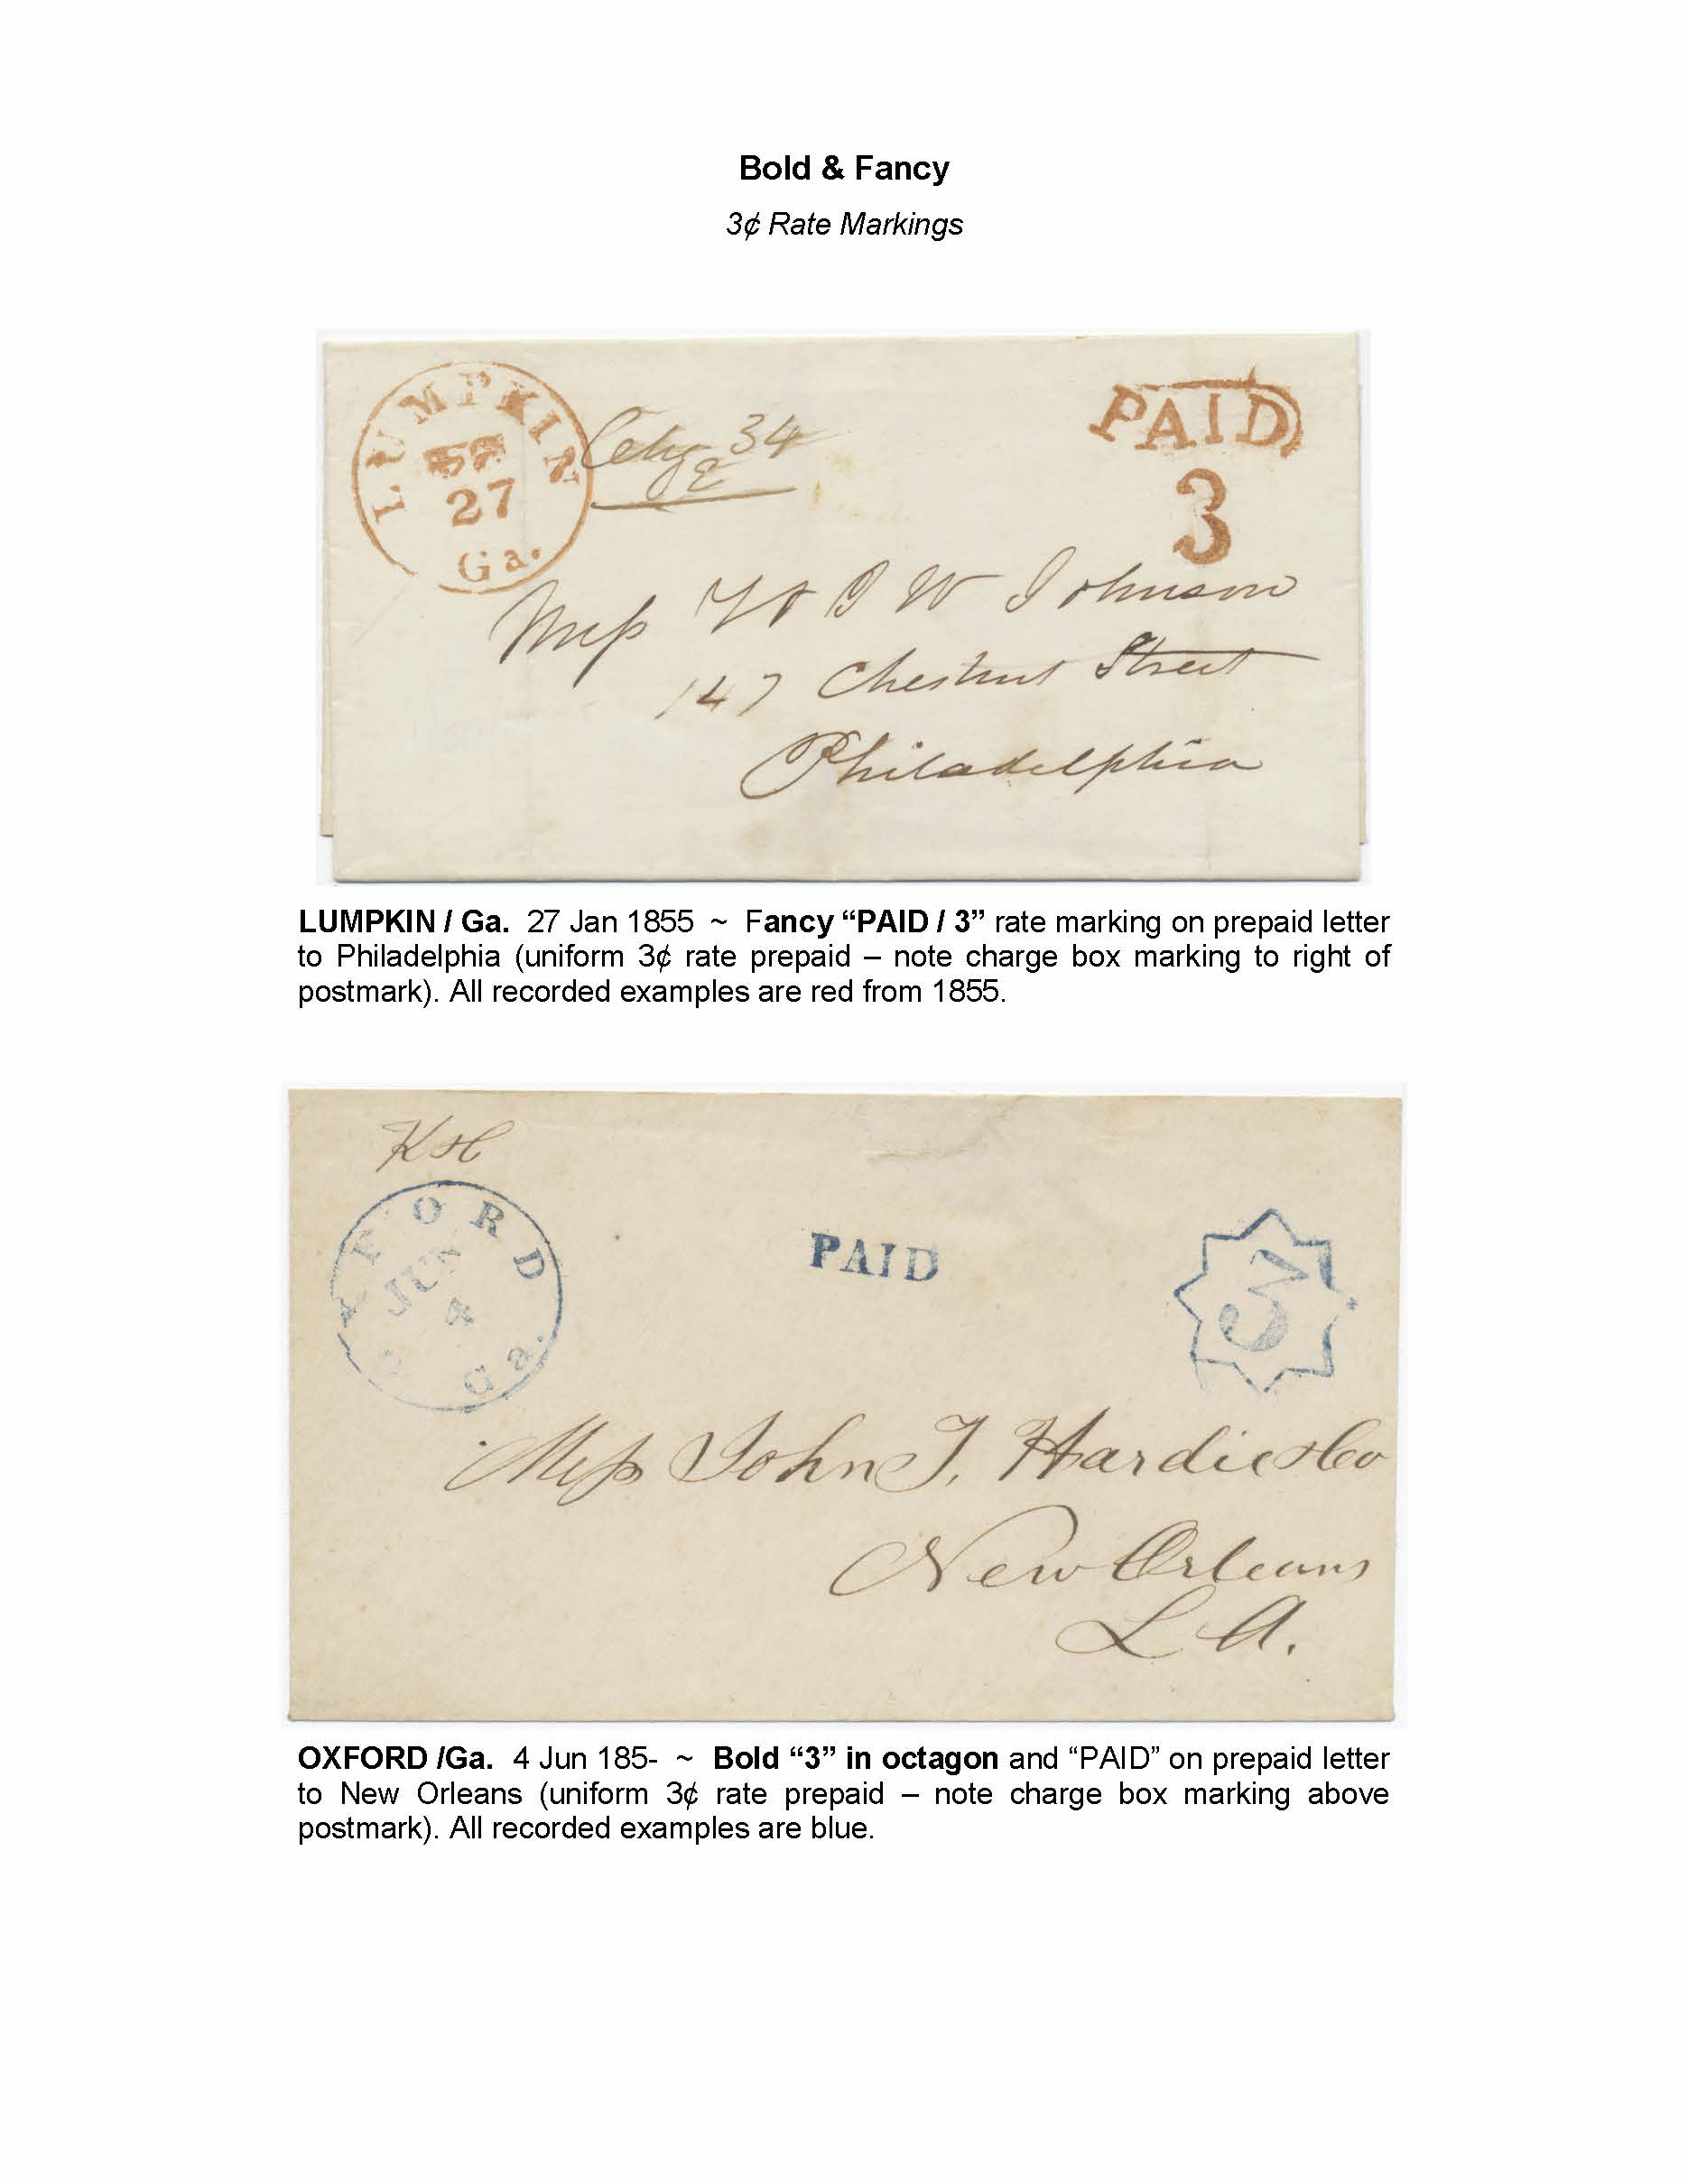 Bold & Fancy
3¢ Rate Markings
LUMPKIN
27
Ga.
34
PAID
3
Mess W J Johnson
147 Chestnut Street
Philadelphia
LUMPKIN / Ga. 27 Jan 1855 ~ Fancy “PAID / 3” rate marking on prepaid letter
to Philadelphia (uniform 3¢ rate prepaid – note charge box marking to right of
postmark). All recorded examples are red from 1855.
FORD
JUN
4
Ga.
PAID
3
Mess John J. Hardie & Co
New Orleans
LA.
OXFORD /Ga. 4 Jun 185- ~ Bold “3” in octagon and “PAID” on prepaid letter
to New Orleans (uniform 3¢ rate prepaid – note charge box marking above
postmark). All recorded examples are blue.